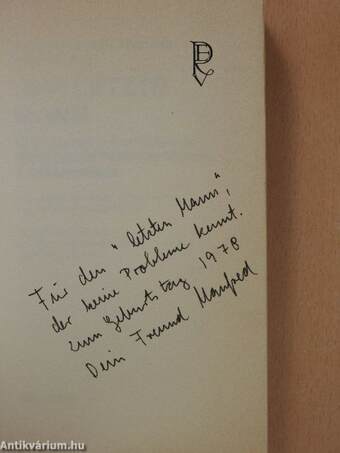 Für den "letzten Mann",
der keine Probleme kennt.
zum Geburtstag 1978
Dein Freund Manfred
Antikvárium.hu